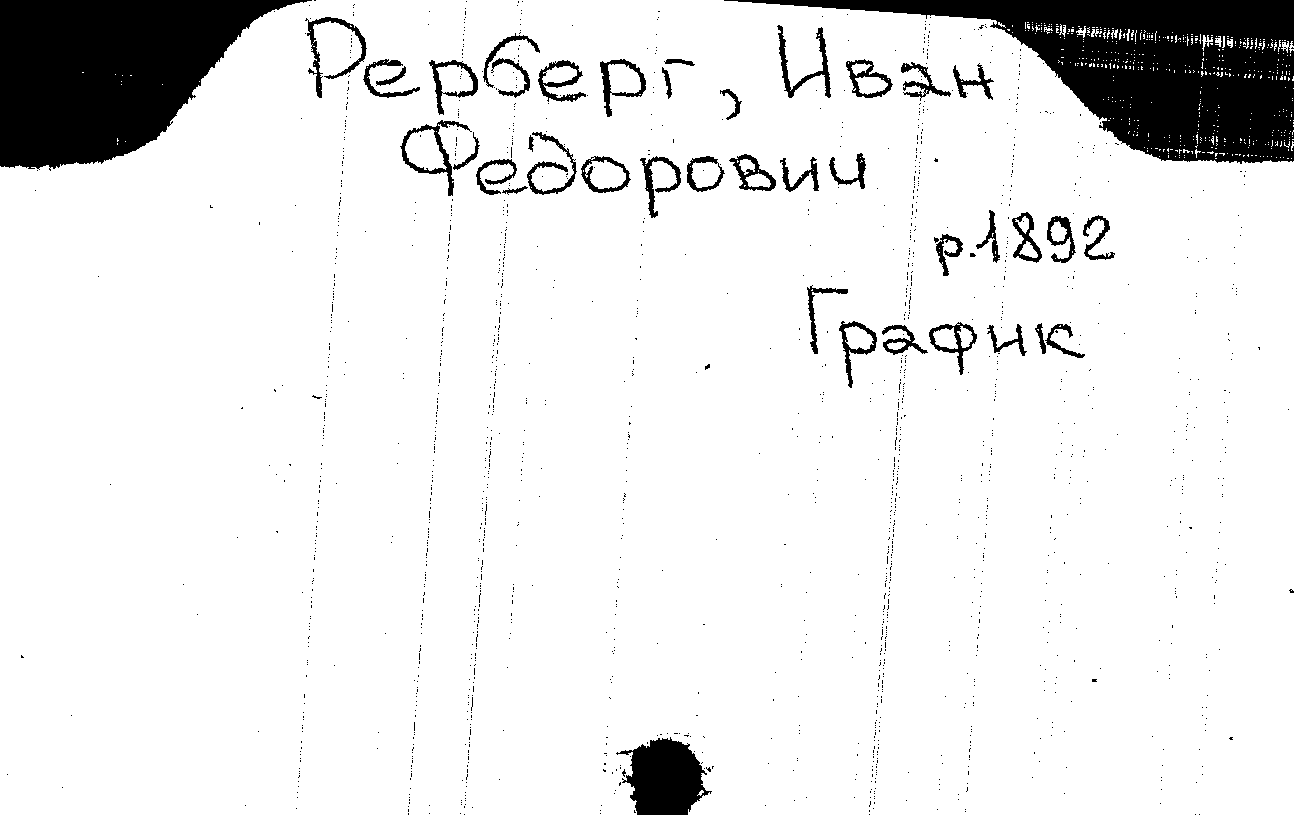 Рерберг, Иван
Федорович
р.1892
График